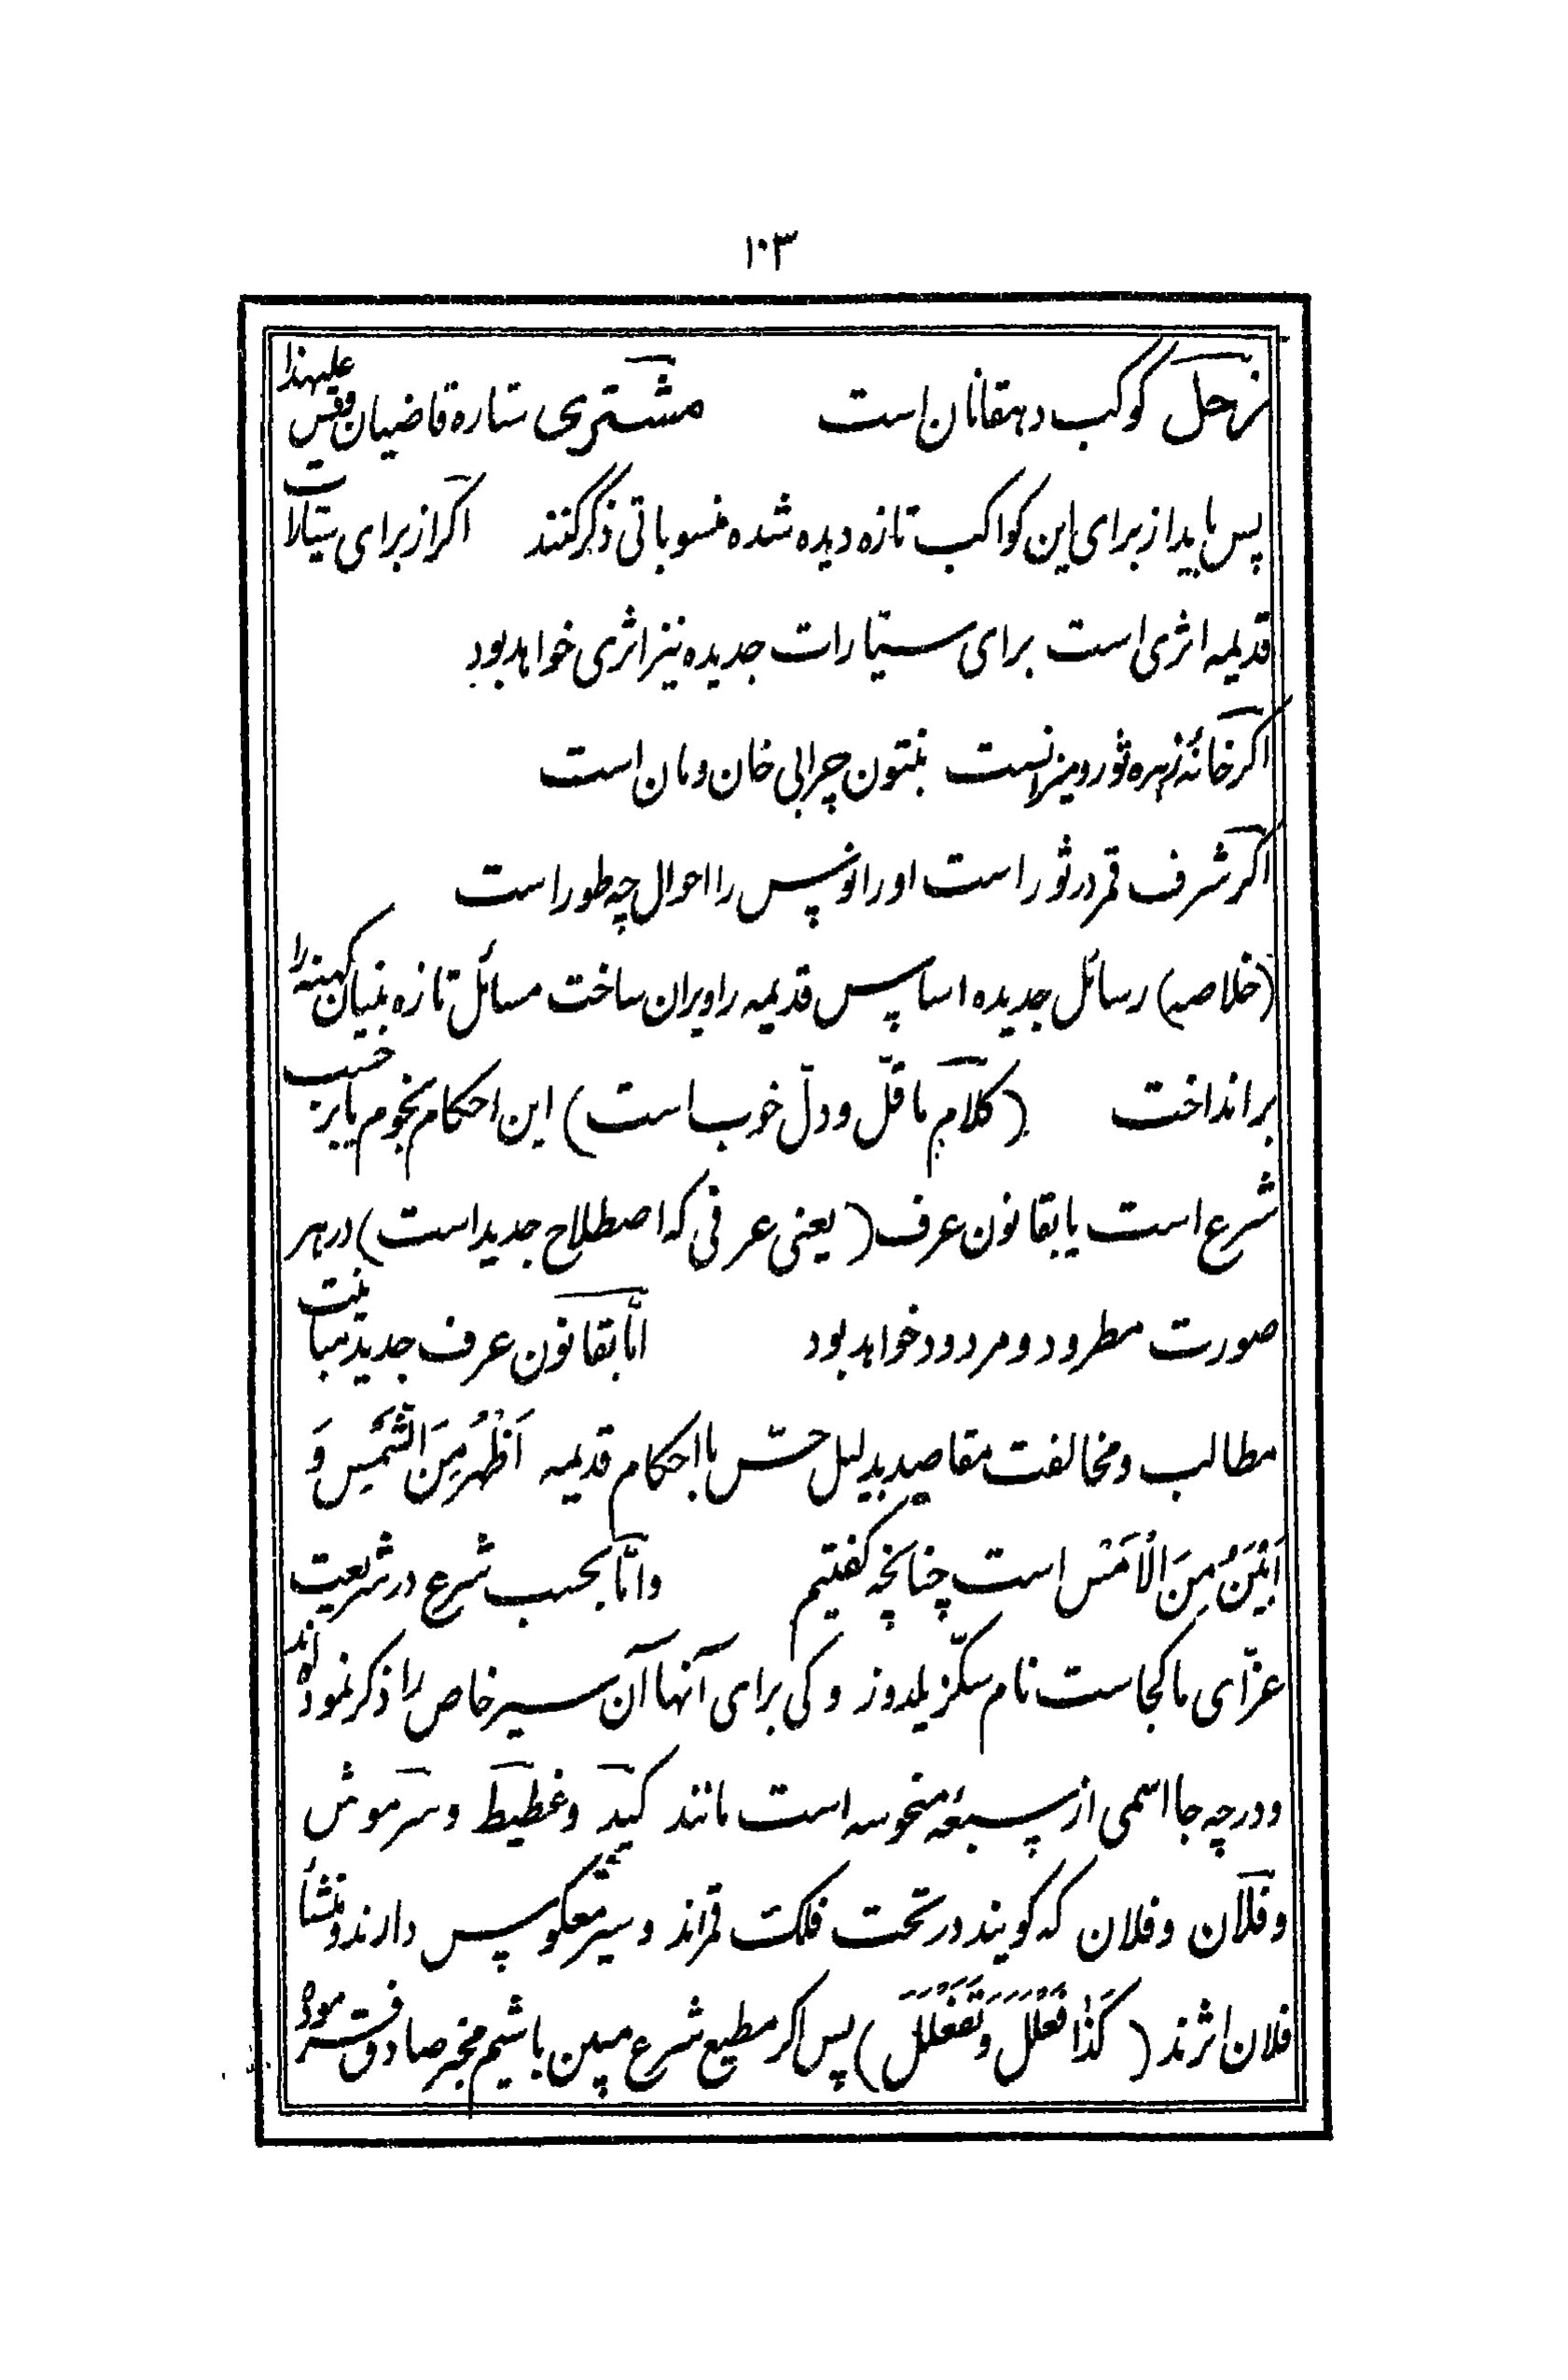 ۱۰۳
زحل کوکب دهقانان است مشتری ستاره قاضیان وقس علیهذا
پس باید از برای این کواکب تازه دیده شده منسوباتی ذکر کنند اکر از برای سیّارات
قدیمه اثری است برای سیّارات جدیده نیز اثری خواهد بود
اکر خانهٔ زهره ثور و میزانست نبتون چرا بی خان و مان است
اکر شرف قمر در ثور است اورانوس را احوال چه طور است
(خلاصه) رسائل جدیده اساس قدیمه را ویران ساخت مسائل تازه بنیان کهنه را
برانداخت (کلام ما قلّ و دلّ خوب است) این احکام نجوم یا بر حسب
شرع است یا بقانون عرف (یعنی عرفی که اصطلاح جدید است) در هر
صورت مطرود و مردود خواهد بود امّا بقانون عرف جدید مباینت
مطالب و مخالفت مقاصد بدلیل حسّ با احکام قدیمه اَظْهَرُ مِنَ الشَّمْسِ وَ
اَبْیَنُ مِنَ الْاَمْس است چنانچه کفتیم و امّا بحسب شرع در شریعت
غرّای ما کجاست نام سکّز یلدوز و کی برای آنها آن سیر خاص را ذکر نموده‌اند
و در چه جا اسمی از سبعهٔ منحوسه است مانند کید و غطیط و سرموش
و فلان و فلان که کویند در تحت فلک قمراند و سیر معکوس دارند و منشأ
فلان اثرند (کَذٰا فَعْلَلَ وَ تَفَعْلَلَ) پس اکر مطیع شرع مبین باشیم مخبر صادق فرموده